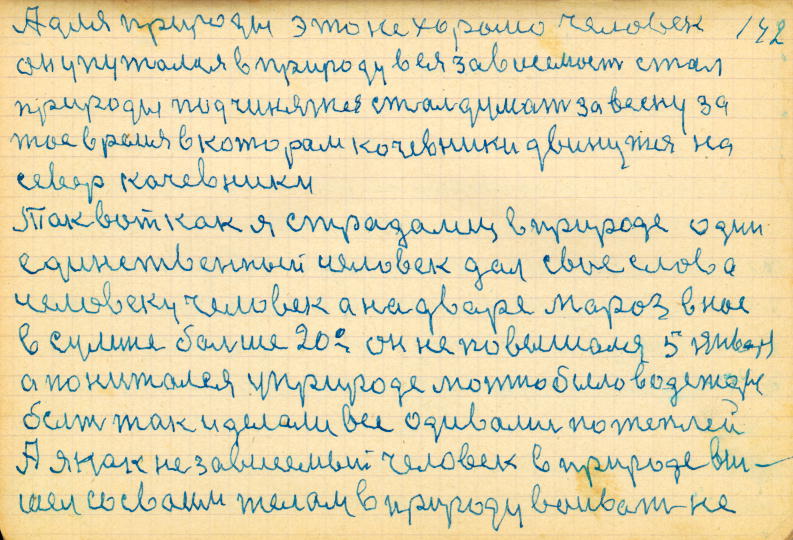 А для природы это не хорошо человек 142
он упутался в природу в ея зависемость стал
природы подчинятся стал думать за весну за
тое время в котором кочевники двинутся на
север качевники
Так вот как я страдалиц в природе один
единственный человек дал свое слово
человеку человек а на дваре мароз в ное
в сумме больше 20° он не повышался 5 января
а понижался у природе можно было в одежде
быть так и делали все одивались потеплей
А я как не зависемый человек в природе вы-
шел со сваим телам в природу воивать не